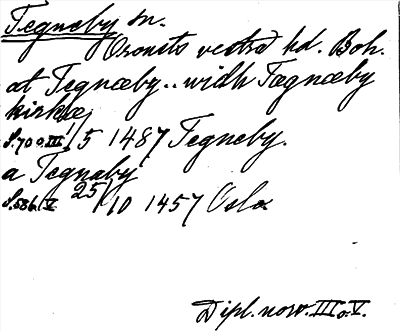 Tegneby sn.
Orousts vestra hd. Boh.
at Tegnæby.. widh Tægnæby
kirkiæ
S.700.III 1/5 1487 Tegneby.
a Tegnaby
S.586.V 25/10 1457 Oslo
Dipl. norv. III o. V.